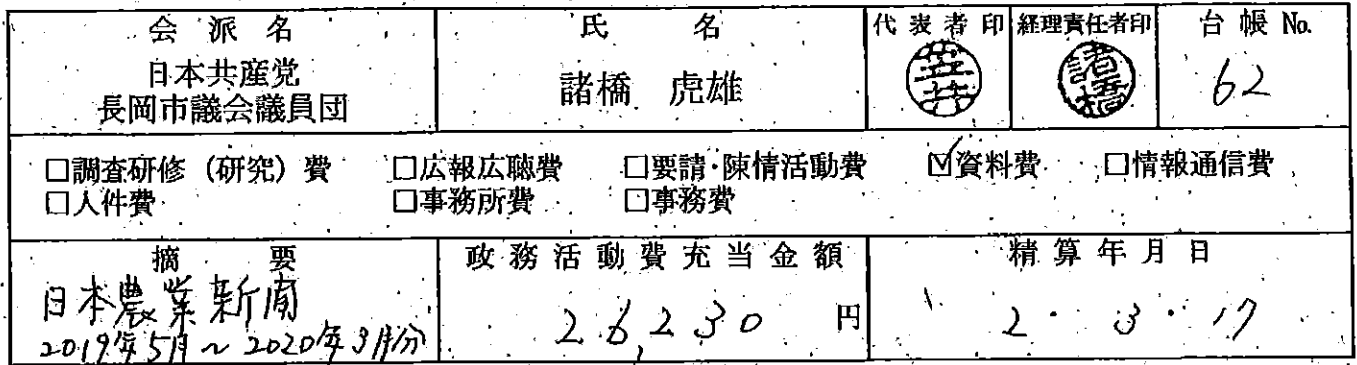 会派名 氏名 代表者印 経理責任者印 台帳No.
日本共産党
長岡市議会議員団
諸橋 虎雄
諸橋
62
□調査研修（研究）費 □広報広聴費 □要請・陳情活動費 ☑資料費 □情報通信費
□人件費 □事務所費 □事務費
摘要 政務活動費充当金額 精算年月日
日本農業新聞
2019年5月～2020年3月分
26,230 円
2・3・17